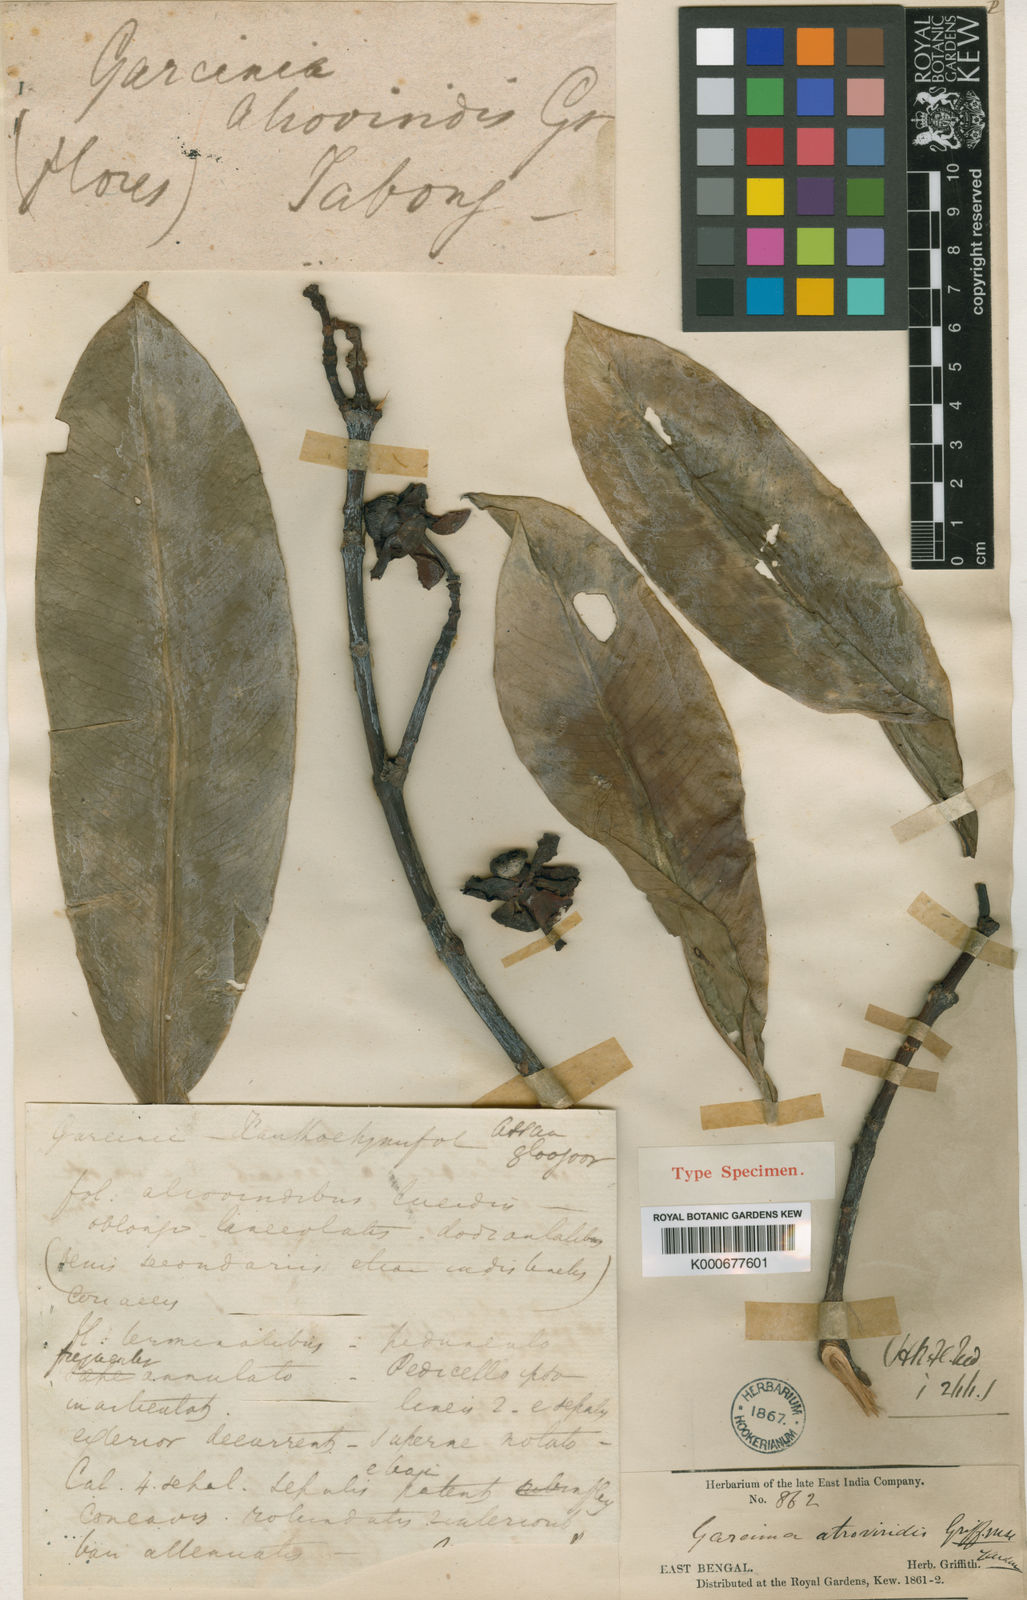 Garcinia
atroviridis Gr
(flores) Tabong —
ROYAL
BOTANIC
GARDENS
KEW
10
9
8
7
6
5
4
3
2
1
0
cm
copyright reserved
Garcinia — Xanthochymifol Assam
fol. atroviridibus lucidis —
oblongo lanceolatis
(venis secondariis etiam indistinctis)
coriaceis
fl: terminalibus — pedunculo
frequenter
annulato — Pedicello
inarticulat. lineis 2 e sepalis
exterior decurrent — superne notato —
e basi
Cal. 4. sephal. sepalis patent
concavis rotundatis
basi attenuatis —
Type Specimen.
ROYAL BOTANIC GARDENS KEW
K000677601
HERBARIUM
1867.
HOOKERIANUM
Herbarium of the late East India Company.
No. 862
Garcinia atroviridis Griff. mss
EAST BENGAL. Herb. Griffith.
Distributed at the Royal Gardens, Kew. 1861-2.